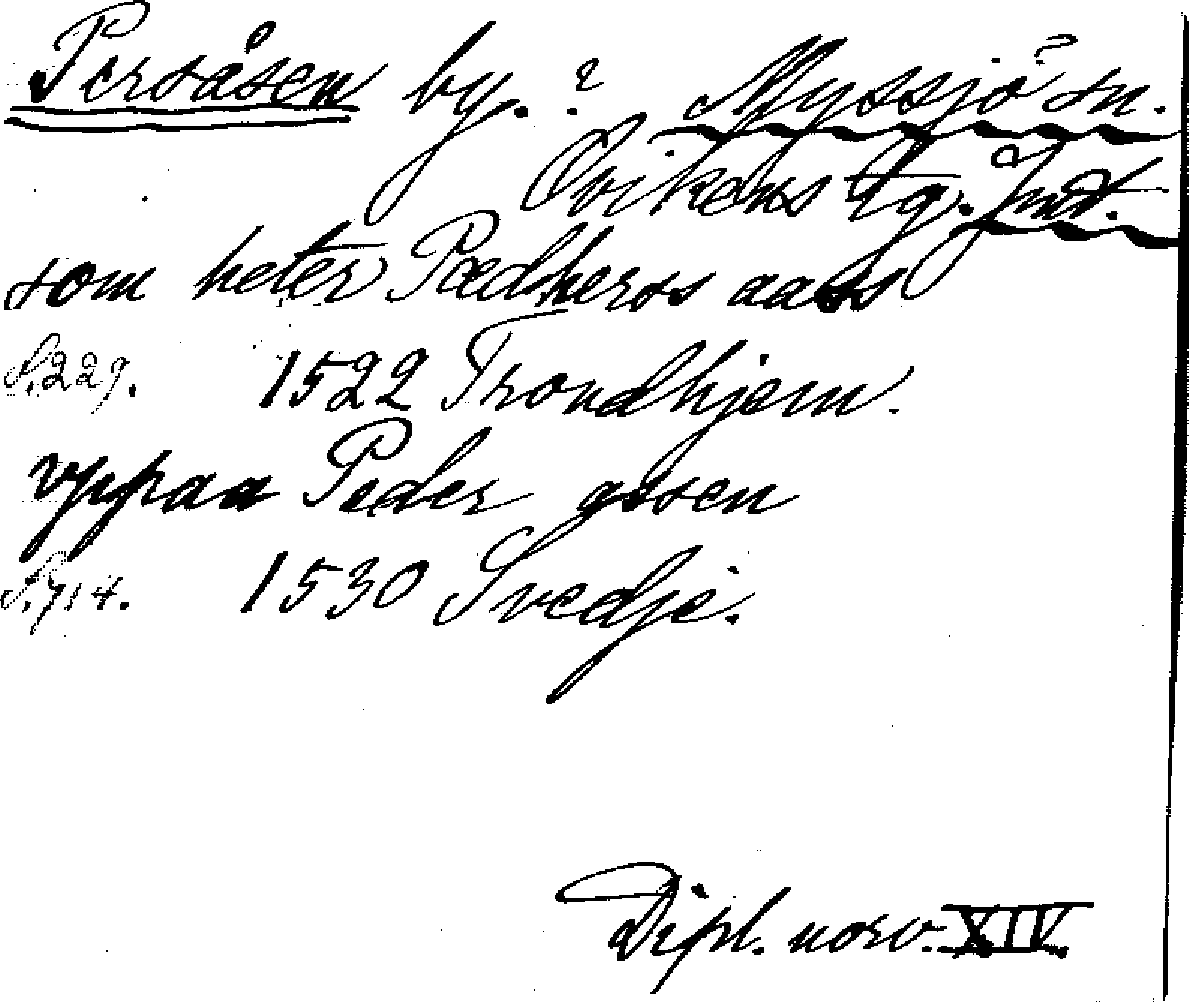 Persåsen by. ? Myssjö sn. ?
Ovikens tg. Jmt.
som heter Pædherss aass
S. 229. 1522 Trondhjem.
vppaa Peder assen
S. 714. 1530 Svedje.
Dipl. norv. XIV.